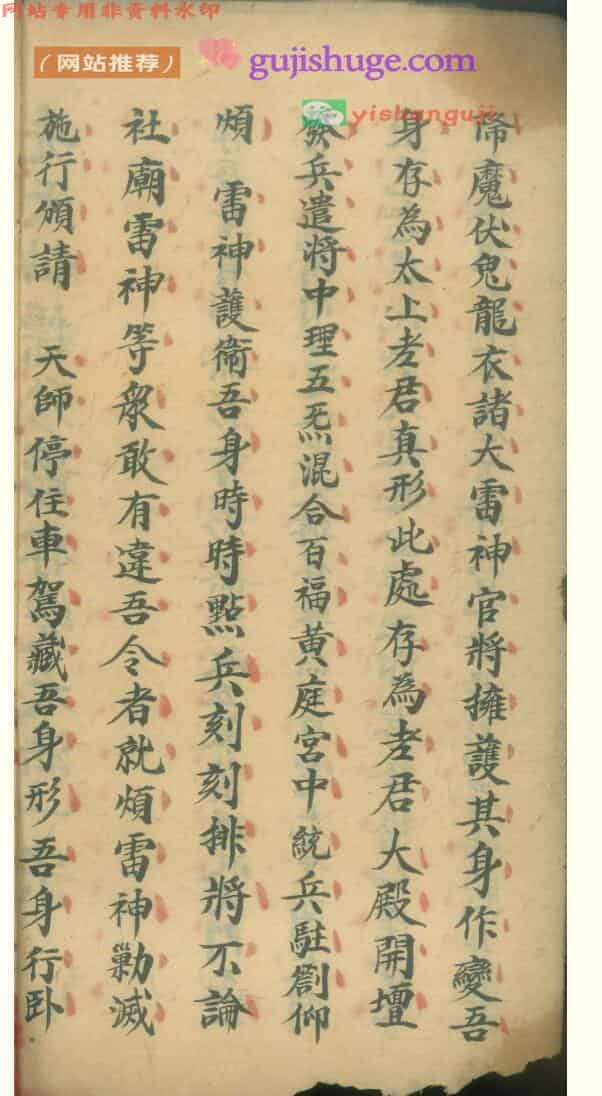 网站专用非资料水印
（网站推荐） gujishuge.com
yishanguji
降魔伏鬼龍衣諸大雷神官將擁護其身作變吾
身存為太上老君真形此處存為老君大殿開壇
發兵遣將中理五炁混合百福黃庭宮中統兵駐劄仰
煩 雷神護衛吾身時時點兵刻刻排將不論
社廟雷神等衆敢有違吾令者就煩雷神勦滅
施行煩請 天師停住車駕藏吾身形吾身行卧